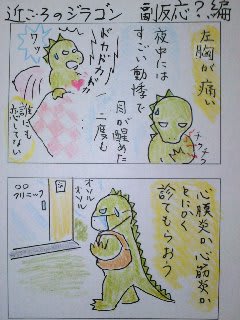 近ごろのジラゴン 副反応？編
左胸が痛い
チクチク
夜中には
すごい動悸で
目が醒めた
二度も
ドカドカドカドカ
誰にも
恋してない
心膜炎か心筋炎か
とにかく
診てもらおう
オソルオソル
○○
クリニック